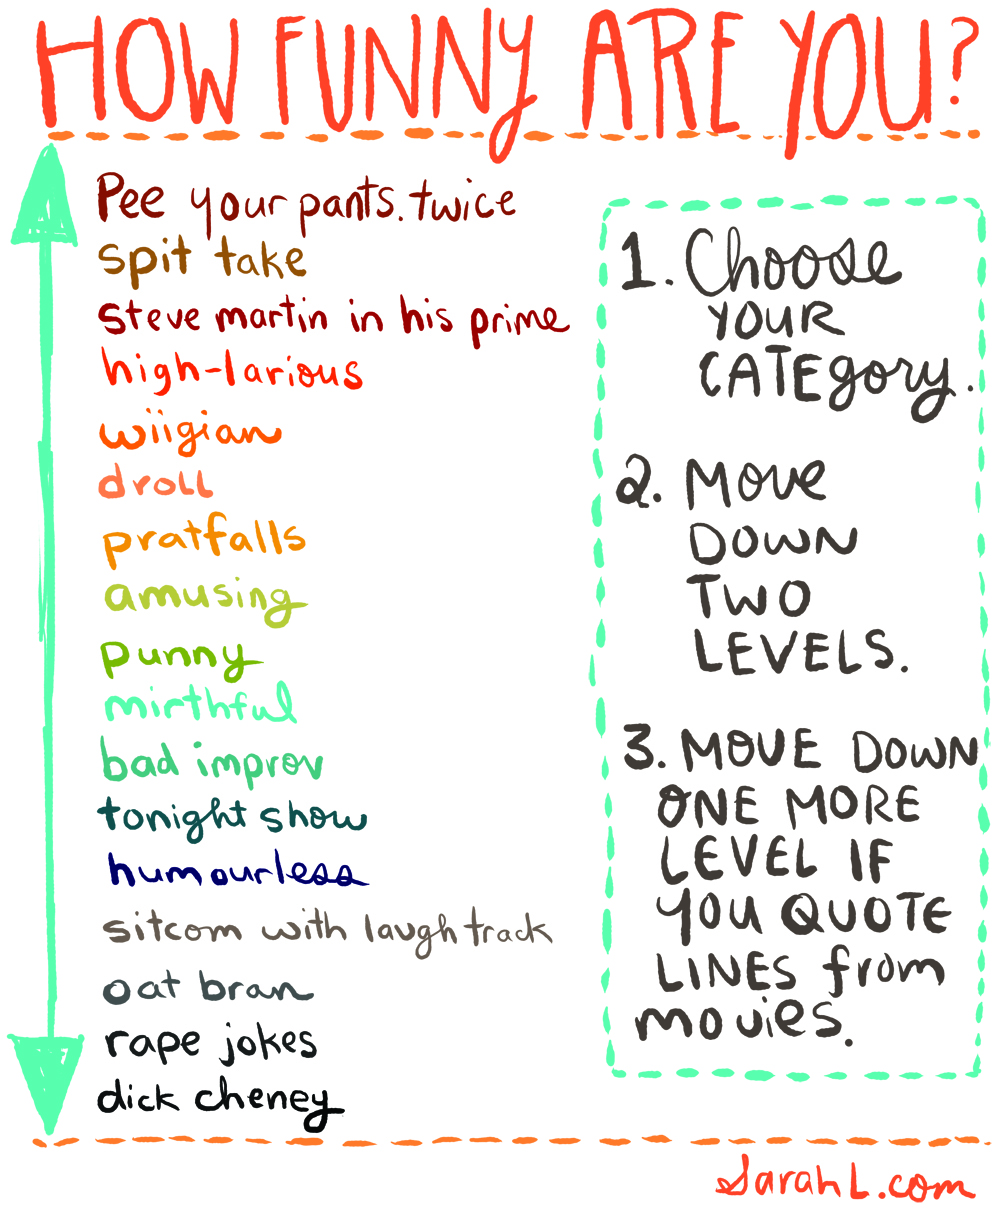 HOW FUNNY ARE YOU?
Pee your pants. twice
spit take
steve martin in his prime
high-larious
wiigian
droll
pratfalls
amusing
punny
mirthful
bad improv
tonight show
humourless
sitcom with laugh track
oat bran
rape jokes
dick cheney
1. Choose
YOUR
CATEgory.
2. Move
DOWN
TWO
LEVELS.
3. MOVE DOWN
ONE MORE
LEVEL IF
YOU QUOTE
LINES from
movies.
SarahL.com